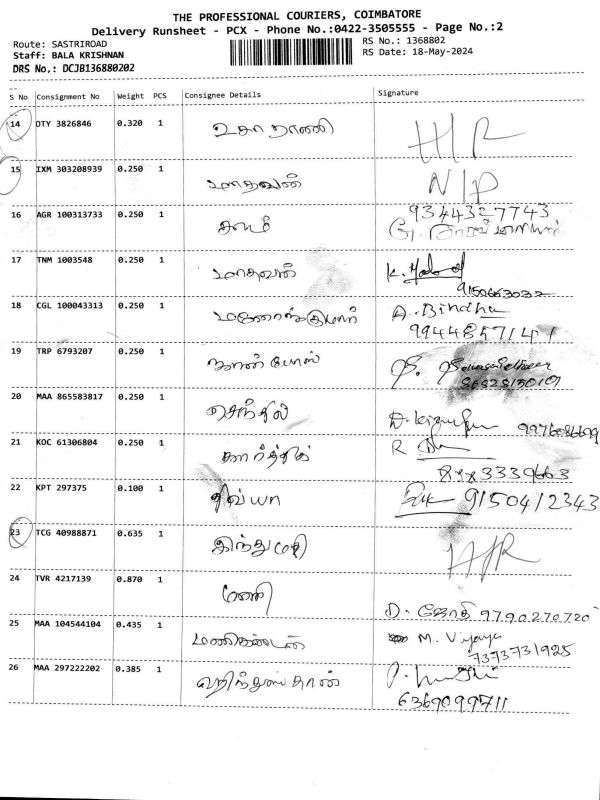 THE PROFESSIONAL COURIERS, COIMBATORE
Delivery Runsheet - PCX - Phone No.:0422-3505555 - Page No.:2
Route: SASTRIROAD RS No.: 1368802
Staff: BALA KRISHNAN RS Date: 18-May-2024
DRS No,: DCJB136880202
S No Consignment No Weight PCS Consignee Details Signature
14 OTY 3826846 0.320 1 உசா ராணி
15 IXM 303208939 0.250 1 மாதவன் N/P
16 AGR 100313733 0.250 1 9344327743
17 TNM 1003548 0.250 1 மாதவன் K.
9150663032
18 CGL 100043313 0.250 1 மனோஜ்குமார் A. Bindhu
9944857141
19 TRP 6793207 0.250 1 ஜான் போஸ்
20 MAA 865583817 0.250 1 செந்தில் 9976086699
21 KOC 61306804 0.250 1 கார்த்திக் R
22 KPT 297375 0.100 1 திவ்யா 9150412343
23 TCG 40988871 0.635 1 இந்துமதி
24 TVR 4217139 0.870 1 மணி D. ஜோதி 9790270720
25 MAA 104544104 0.435 1 மணிகண்டன் M. Vijaya
7373731925
26 MAA 297222202 0.385 1 ஹிந்துஸ்தான்
6369099711